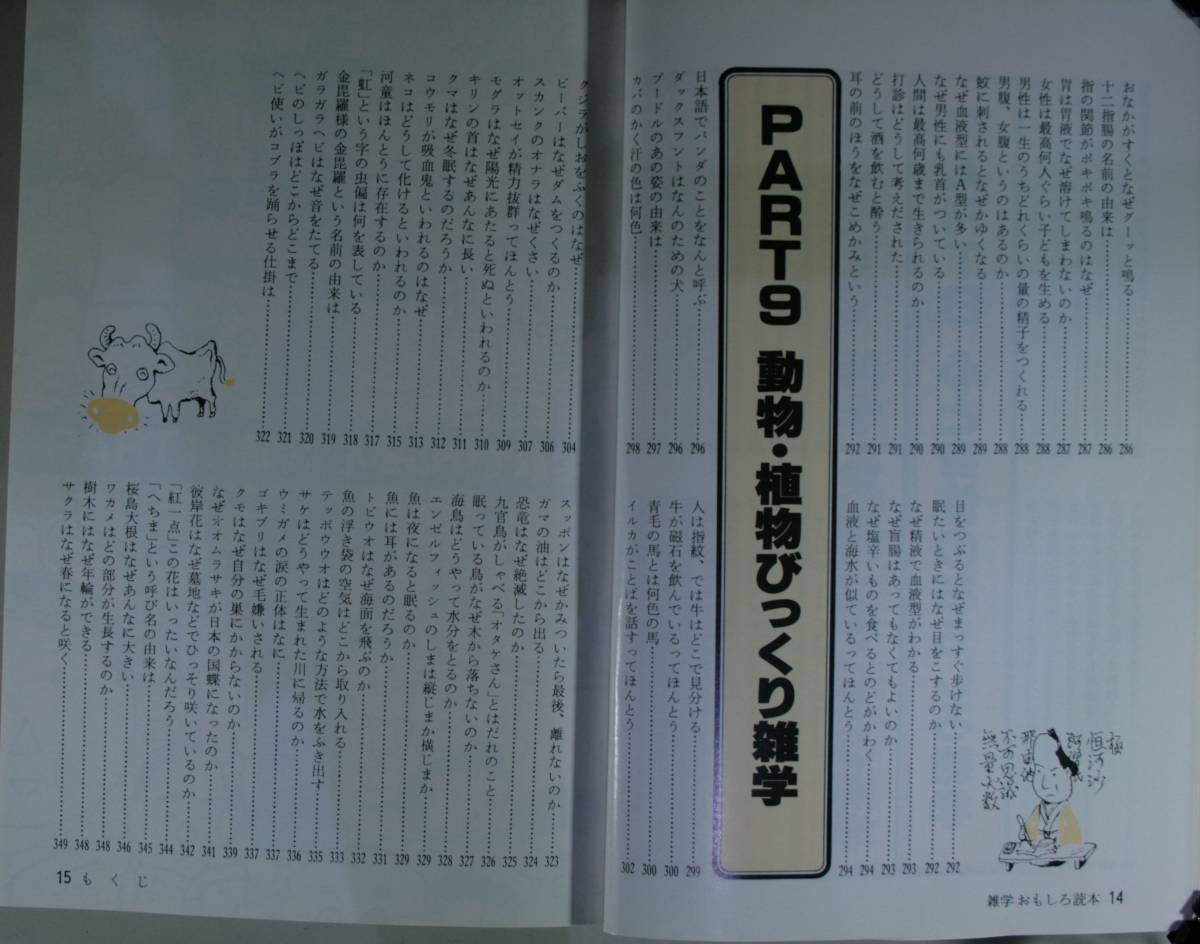 おなかがすくとなぜグーッと鳴る……286
十二指腸の名前の由来は……286
指の関節がポキポキ鳴るのはなぜ……287
胃は胃液でなぜ溶けてしまわないのか……287
女性は最高何人ぐらい子どもを生める……288
男性は一生のうちどれくらいの量の精子をつくれる……288
男腹、女腹というのはあるのか……288
蚊に刺されるとなぜかゆくなる……289
なぜ血液型にはA型が多い……289
なぜ男性にも乳首がついている……290
人間は最高何歳まで生きられるのか……290
打診はどうして考えだされた……291
どうして酒を飲むと酔う……291
耳の前のほうをなぜこめかみという……292
目をつぶるとなぜまっすぐ歩けない……292
眠たいときにはなぜ目をこするのか……292
なぜ精液で血液型がわかる……293
なぜ盲腸はあってもなくてもよいのか……293
なぜ塩辛いものを食べるとのどがかわく……294
血液と海水が似ているってほんとう……294
極
恒河沙
阿僧祇
那由他
不可思議
無量大数
PART9 動物・植物びっくり雑学
日本語でパンダのことをなんと呼ぶ……296
ダックスフントはなんのための犬……296
プードルのあの姿の由来は……297
カバのかく汗の色は何色……298
人は指紋、では牛はどこで見分ける……299
牛が磁石を飲んでいるってほんとう……300
青毛の馬とは何色の馬……300
イルカがことばを話すってほんとう……302
雑学おもしろ読本 14
クジラがしおをふくのはなぜ……304
ビーバーはなぜダムをつくるのか……306
スカンクのオナラはなぜくさい……307
オットセイが精力抜群ってほんとう……309
モグラはなぜ陽光にあたると死ぬといわれるのか……310
キリンの首はなぜあんなに長い……311
クマはなぜ冬眠するのだろうか……312
コウモリが吸血鬼といわれるのはなぜ……313
ネコはどうして化けるといわれるのか……315
河童はほんとうに存在するのか……317
「虹」という字の虫偏は何を表している……318
金毘羅様の金毘羅という名前の由来は……319
ガラガラヘビはなぜ音をたてる……320
ヘビのしっぽはどこからどこまで……321
ヘビ使いがコブラを踊らせる仕掛は……322
スッポンはなぜかみついたら最後、離れないのか……323
ガマの油はどこから出る……324
恐竜はなぜ絶滅したのか……325
九官鳥がしゃべる「オタケさん」とはだれのこと……326
眠っている鳥がなぜ木から落ちないのか……327
海鳥はどうやって水分をとるのか……328
エンゼルフィッシュのしまは縦じまか横じまか……329
魚は夜になると眠るのか……329
魚には耳があるのだろうか……331
トビウオはなぜ海面を飛ぶのか……332
魚の浮き袋の空気はどこから取り入れる……333
テッポウウオはどのような方法で水をふき出す……335
サケはどうやって生まれた川に帰るのか……336
ウミガメの涙の正体はなに……337
ゴキブリはなぜ毛嫌いされる……337
クモはなぜ自分の巣にかからないのか……339
なぜオオムラサキが日本の国蝶になったのか……341
彼岸花はなぜ墓地などでひっそり咲いているのか……342
「紅一点」この花はいったいなんだろう……344
「へちま」という呼び名の由来は……345
桜島大根はなぜあんなに大きい……346
ワカメはどの部分が生長するのか……348
樹木にはなぜ年輪ができる……348
サクラはなぜ春になると咲く……349
15 もくじ